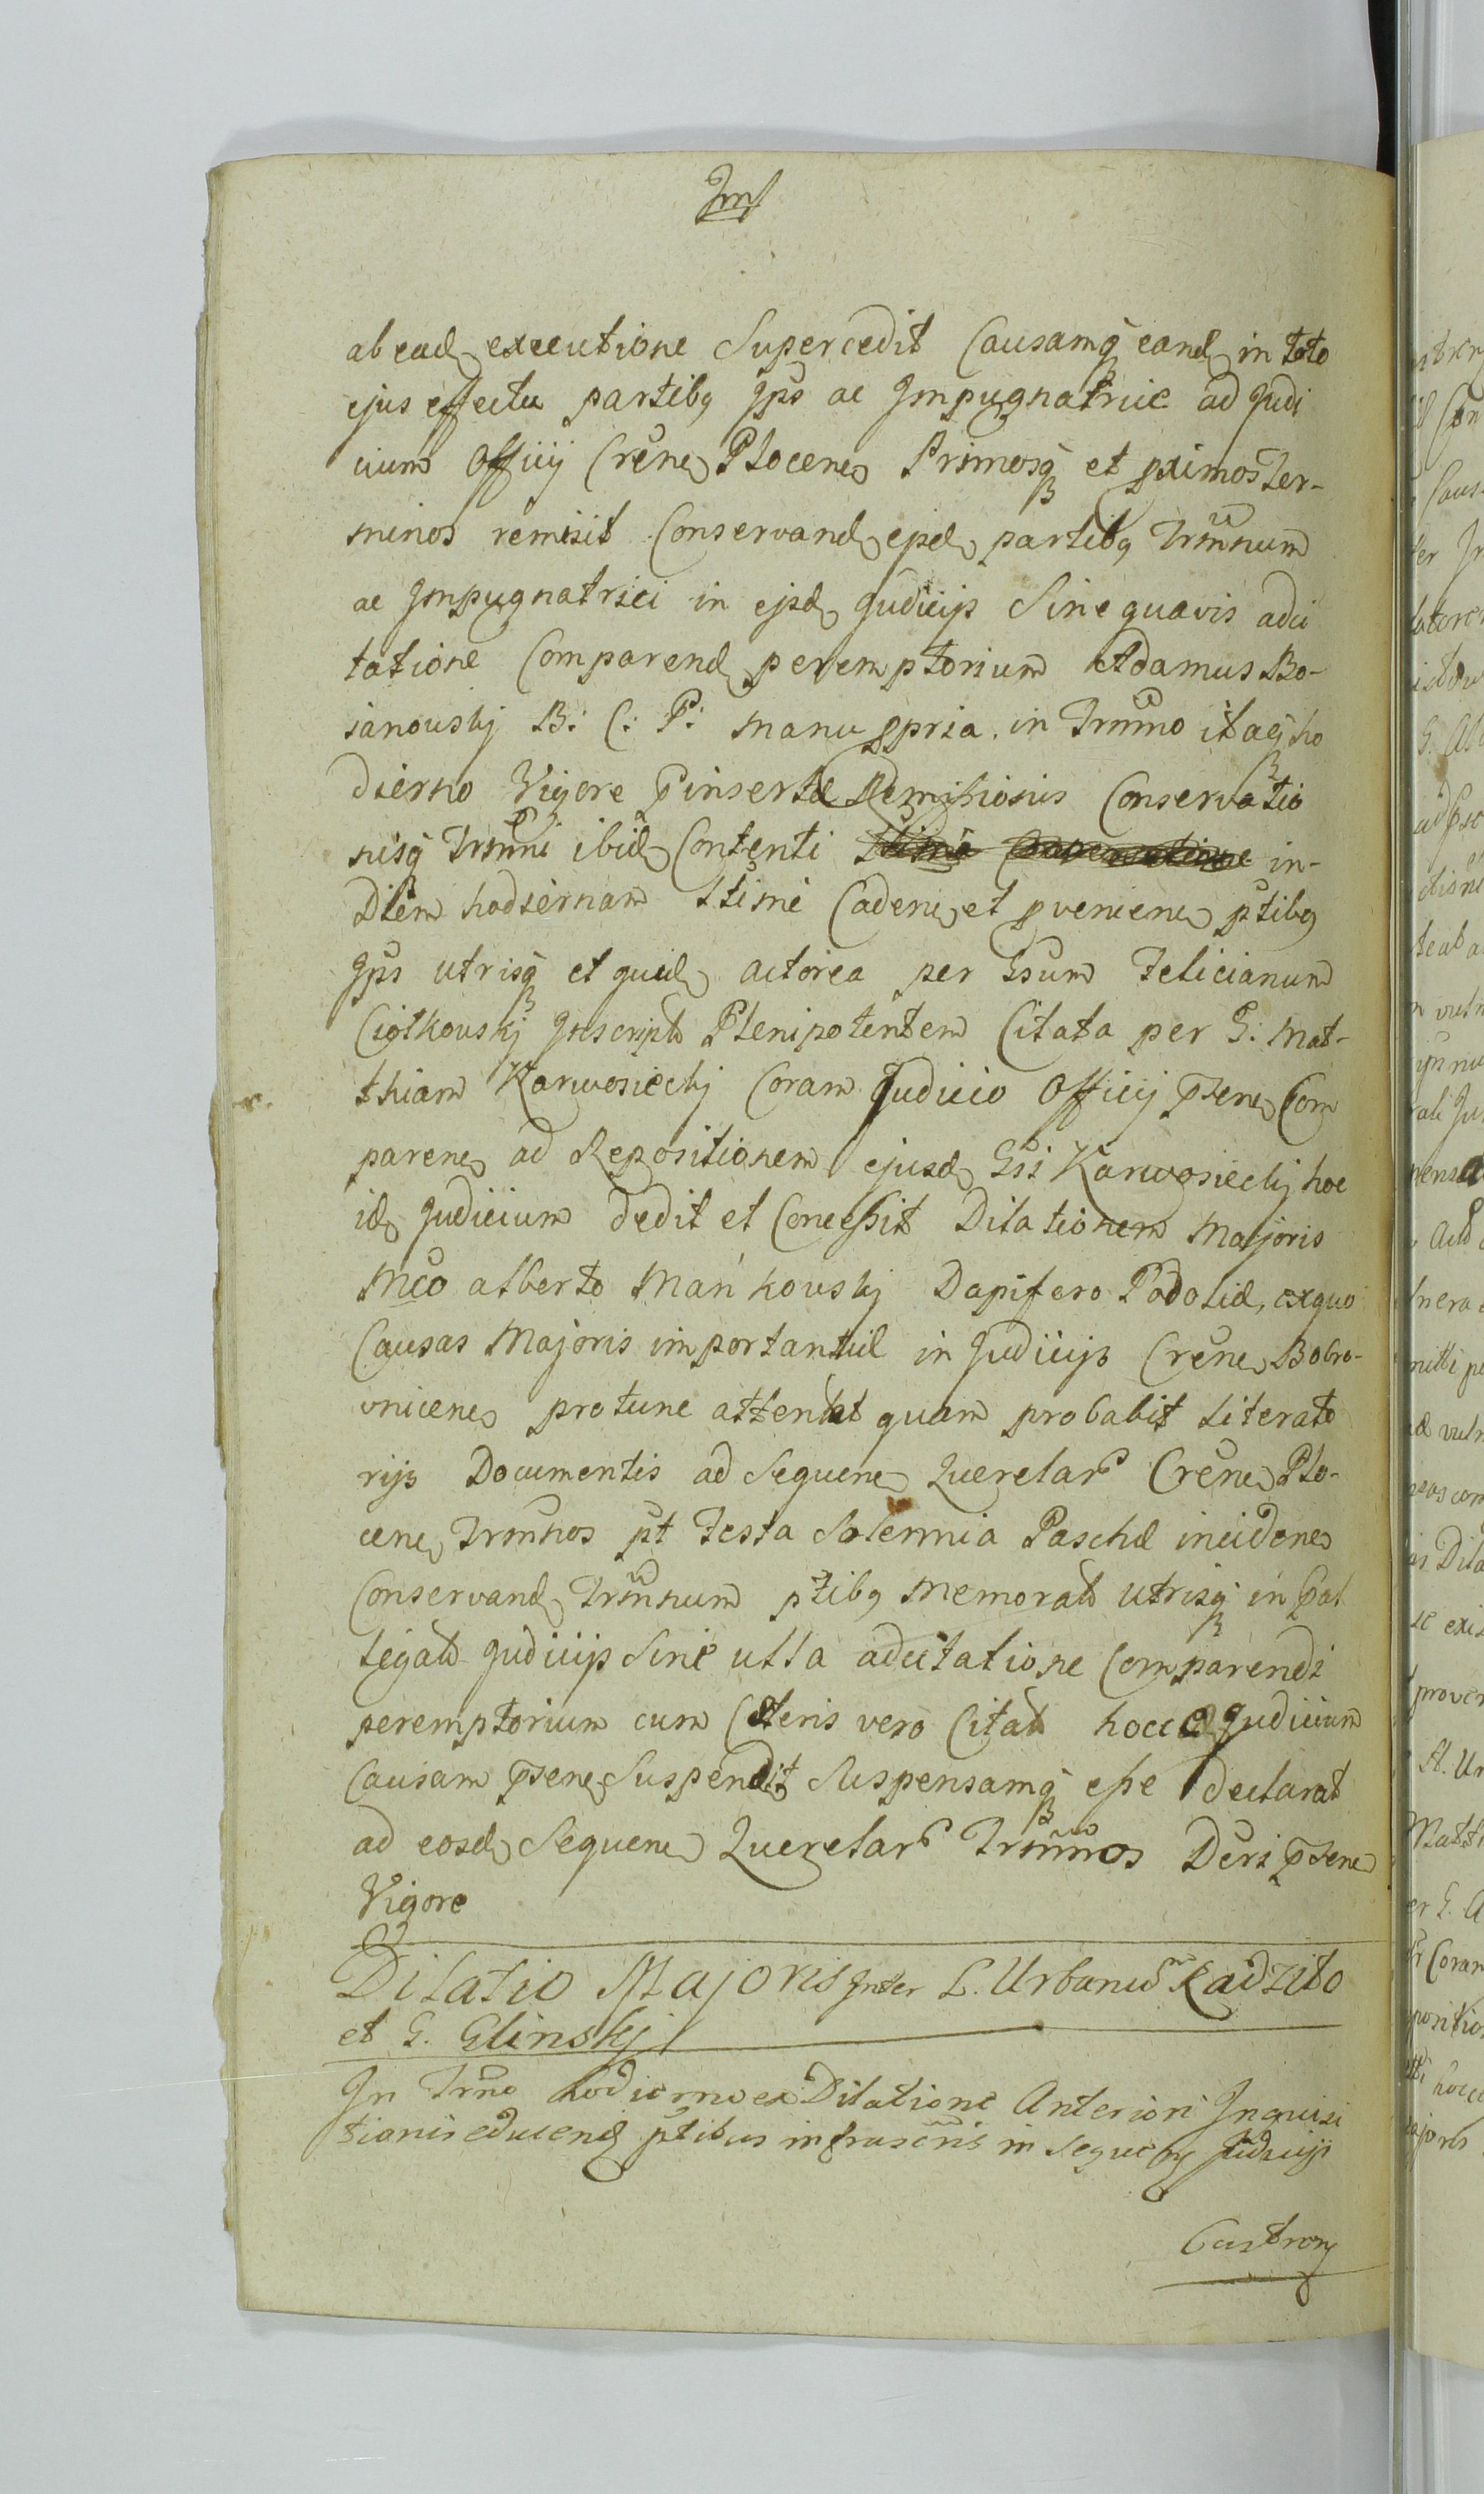 ab ead executione Supercedit Causamq eand in toto
ejus effectu partibq Jps ac Impugnatric ad Judi
cium Officij Crene Plocene Primosq et pximos Ter-
minos remisit Conservand ejsd partibq Trmnum
ac Impugnatrici in ejsd Judicijs Sine quavis adci
tatione Comparend peremptorium Adamus Bo-
janouskj B: C: P: manu ppria. in Trmno itaq ho
dierno Vigore Pinsertæ Remissionis Conservatio
nisq Trmni ibid Contenti in-
Diem hodiernam ltime Cadene et pveniene ptibq
Jps utrisq et quid actorea per Gsum Felicianum
Ciołkouskj Inscript Plenipotentem Citata per G: Mat-
thiam Karwosieckj Coram Judicio Officij psene Com
parene ad Repositionem ejusd Gsi Karwosieckj hoc
id Judicium dedit et Concessit Dilationem Majoris
Mco alberto Mańkouskj Dapifero Podoliæ, exquo
Causas Majoris importantiæ in Judicijs Crene Bobro-
vnicene protunc attentat quam probabit literato
rijs Documentis ad Sequene Querelar Crene Plo-
cene Trmnos pt Festa Solennia Paschæ incidene
Conservand Trmnum ptibq memorat utrisq in
legat Judicijs Sine ulla adcitatione Comparendi
peremptorium cum Cæteris vero Citat hocce Judicium
Causam psene Suspendit Suspensamq esse declarat
ad eosd Sequene Querelar Trmnos Dcri psene
Vigore
Dilatio Majoris Inter L. Urbanum Radzito
et G. Glinskj
In Trmo hodierno ex Dilatione Anteriori Inquisi
tionis educend ptibus infrascris in Sequen Judicijs
Castren